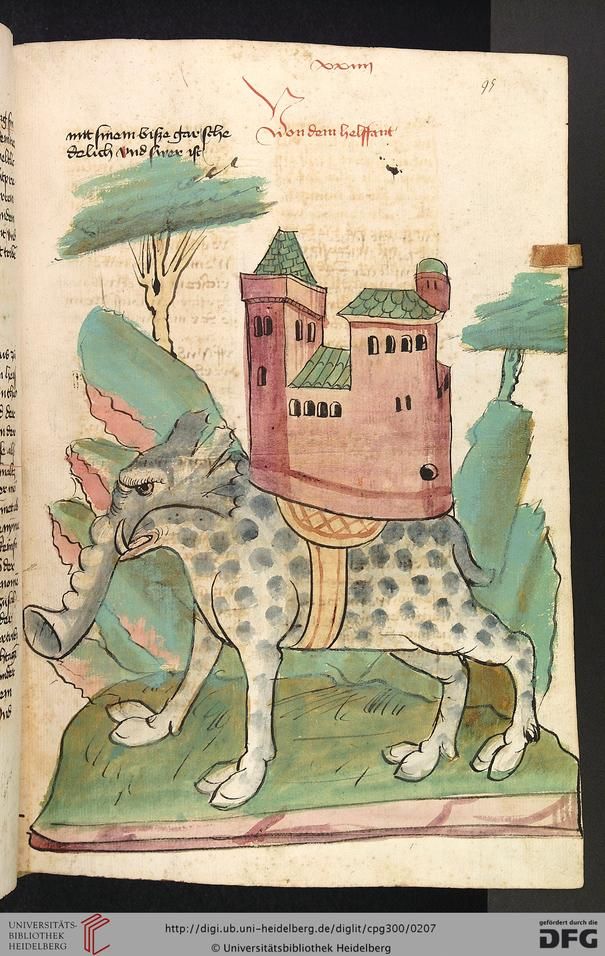 xxiiij
95
Von dem helffant
mit sinem bisze gar sche
delich vnd swer ist
UNIVERSITÄTS-
BIBLIOTHEK
HEIDELBERG
http://digi.ub.uni-heidelberg.de/diglit/cpg300/0207
© Universitätsbibliothek Heidelberg
gefördert durch die
DFG